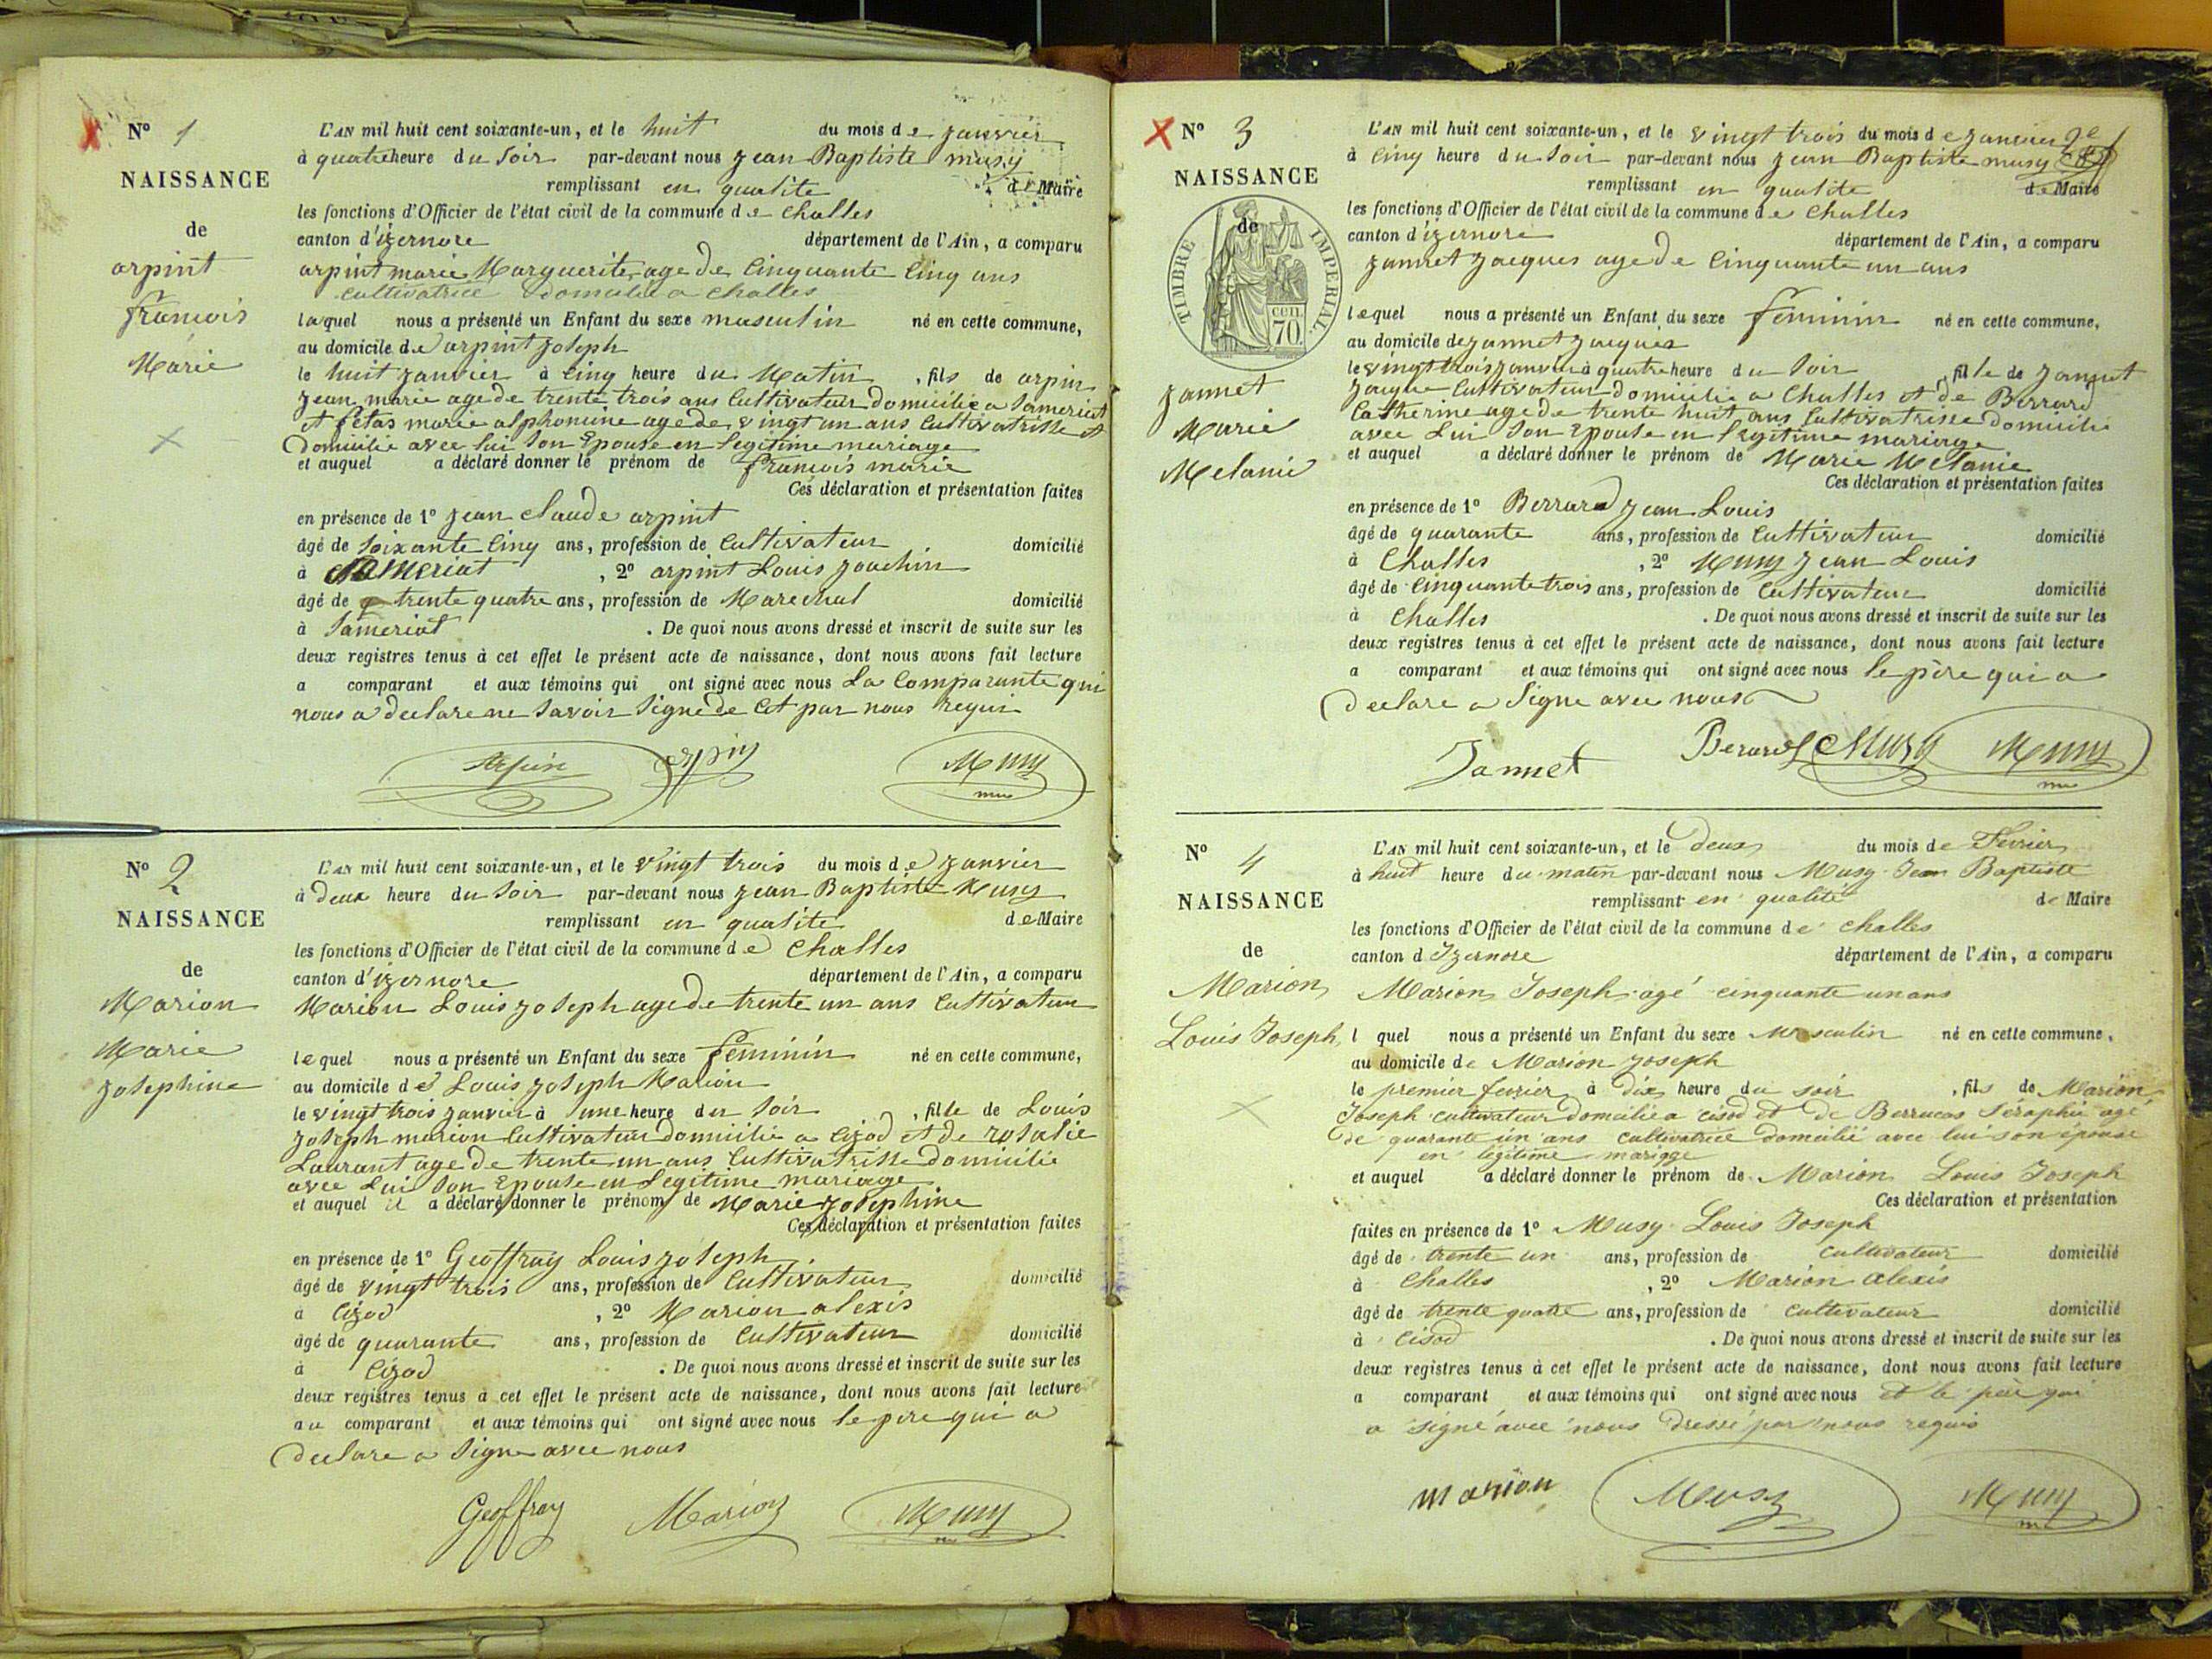 N° 1
NAISSANCE
de
arpint
francois
Marie
L'AN mil huit cent soixante-un, et le huit du mois de janvier
à quatre heure du Soir par-devant nous jean Baptiste musy
remplissant en qualite de Maire
les fonctions d'Officier de l'état civil de la commune de Challes
canton d'izernore département de l'Ain, a comparu
arpint marie Marguerite age de Cinquante Cinq ans
cultivatrice domicilié a Challes
laquel nous a présenté un Enfant du sexe masculin né en cette commune,
au domicile de arpint joseph
le huit janvier à Cinq heure du Matin, fils de arpin
jean marie age de trente trois ans Cultivateur domicilié a Samériat
et fétas marie alphonsine age de vingt un ans Cultivatrisse et
Domicilié avec lui Son Epouse en legitime mariage
et auquel a déclaré donner le prénom de francois marie
Ces déclaration et présentation faites
en présence de 1° jean claude arpint
âgé de Soixante Cinq ans, profession de Cultivateur domicilié
à Samériat, 2° arpint Louis joachin
âgé de trente quatre ans, profession de Marechal domicilié
à Samériat. De quoi nous avons dressé et inscrit de suite sur les
deux registres tenus à cet effet le présent acte de naissance, dont nous avons fait lecture
a comparant et aux témoins qui ont signé avec nous La Comparante qui
nous a declare ne Savoir Signe de Cet par nous requi
Arpin arpin Musy
N° 2
NAISSANCE
de
Marion
Marie
josephine
L'AN mil huit cent soixante-un, et le vingt trois du mois de janvier
à Deux heure du Soir par-devant nous jean Baptiste Musy
remplissant en qualite de Maire
les fonctions d'Officier de l'état civil de la commune de Challes
canton d'izernore département de l'Ain, a comparu
Marion Louis joseph age de trente un ans Cultivateur
lequel nous a présenté un Enfant du sexe féminin né en cette commune,
au domicile de Louis joseph Marion
le vingt trois janvier à une heure du Soir, fille de Louis
joseph marion Cultivateur domicilié a Cizod et de rosalie
Laurant age de trente un ans Cultivatrisse domicilié
avec Lui Son Epouse en Legitime mariage
et auquel il a déclaré donner le prénom de Marie josephine
Ces déclaration et présentation faites
en présence de 1° Geoffray Louis joseph
âgé de vingt trois ans, profession de Cultivateur domicilié
à Cizod, 2° Marion alexis
âgé de quarante ans, profession de Cultivateur domicilié
à Cizod. De quoi nous avons dressé et inscrit de suite sur les
deux registres tenus à cet effet le présent acte de naissance, dont nous avons fait lecture
au comparant et aux témoins qui ont signé avec nous le pere qui a
Declare a Signe avec nous
Geoffray Marion Musy
N° 3
NAISSANCE
de
TIMBRE IMPERIAL
CEN
70
jannet
Marie
Melanie
L'AN mil huit cent soixante-un, et le vingt trois du mois de janvier 2e
à Cinq heure du Soir par-devant nous jean Baptiste musy
remplissant en qualite de Maire
les fonctions d'Officier de l'état civil de la commune de Challes
canton d'izernore département de l'Ain, a comparu
jannet jacques age de Cinquante un ans
lequel nous a présenté un Enfant du sexe féminin né en cette commune,
au domicile de jannet jacques
le vingt trois janvier à quatre heure du Soir, fille de jannet
jacque Cultivateur domicilié a Challes et de Berrard
Catherine age de trente huit ans Cultivatrisse domicilié
avec Lui Son Epouse en Legitime mariage
et auquel a déclaré donner le prénom de Marie Melanie
Ces déclaration et présentation faites
en présence de 1° Berrard jean Louis
âgé de quarante ans, profession de Cultivateur domicilié
à Challes, 2° Musy jean Louis
âgé de Cinquante trois ans, profession de Cultivateur domicilié
à Challes. De quoi nous avons dressé et inscrit de suite sur les
deux registres tenus à cet effet le présent acte de naissance, dont nous avons fait lecture
a comparant et aux témoins qui ont signé avec nous le père qui a
Declare a Signe avec nous
Jannet Berard Musy Musy
N° 4
NAISSANCE
de
Marion
Louis Joseph
L'AN mil huit cent soixante-un, et le deux du mois de Février
à huit heure du matin par-devant nous Musy Jean Baptiste
remplissant en qualité de Maire
les fonctions d'Officier de l'état civil de la commune de Challes
canton d Izernore département de l'Ain, a comparu
Marion Joseph agé cinquante un ans
l quel nous a présenté un Enfant du sexe Masculin né en cette commune,
au domicile de Marion Joseph
le premier fevrier à dix heure du soir, fils de Marion
Joseph cultivateur domicilié a cisod et de Berrucas Séraphie agé
de quarante un ans cultivatrice domicilié avec lui son épouse
en légitime mariage
et auquel a déclaré donner le prénom de Marion Louis Joseph
Ces déclaration et présentation
faites en présence de 1° Musy Louis Joseph
âgé de trente un ans, profession de cultivateur domicilié
à Challes, 2° Marion alexis
âgé de trente quatre ans, profession de cultivateur domicilié
à Cisod. De quoi nous avons dressé et inscrit de suite sur les
deux registres tenus à cet effet le présent acte de naissance, dont nous avons fait lecture
a comparant et aux témoins qui ont signé avec nous et le père qui
a signé avec nous dressé par nous requis
marion Musy Musy